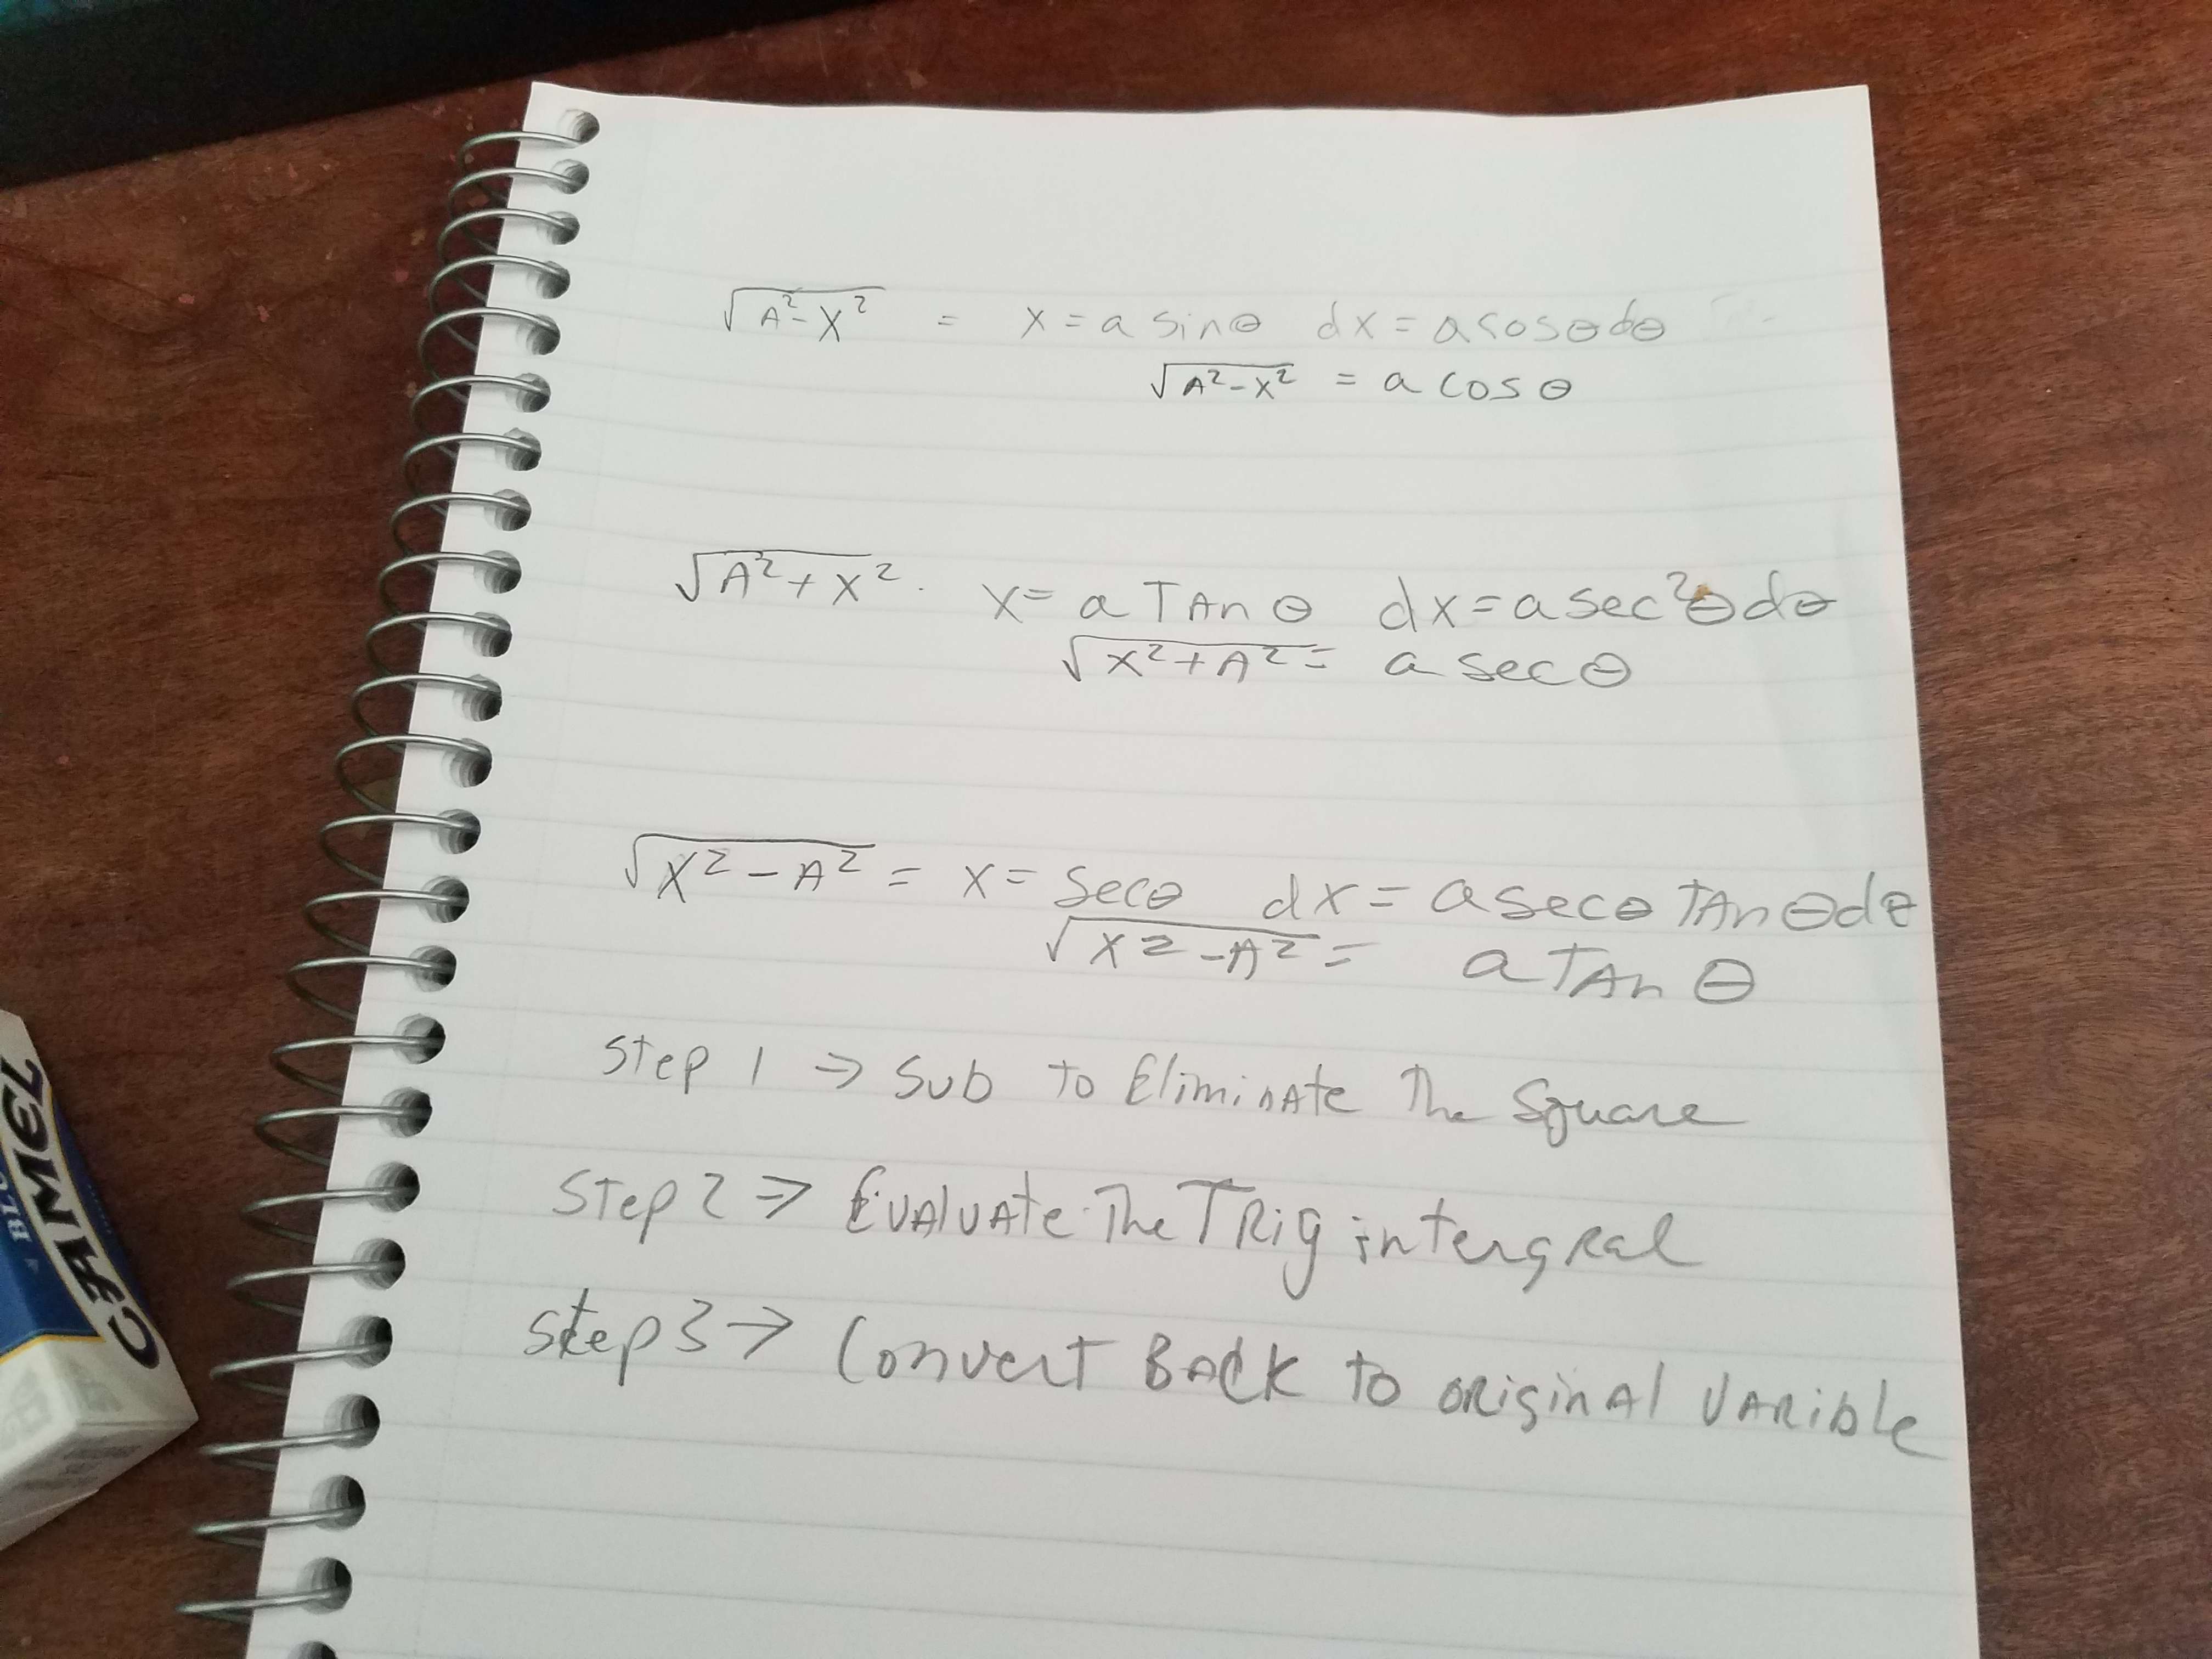 √A²-X² = X = a sinθ dx = a cosθdθ
√A²-X² = a cosθ
√A²+X² . X= a TAnθ dx=asec²θdθ
√X²+A² = a secθ
√X²-A² = X= secθ dx= asecθ TAnθdθ
√X²-A² = a TAnθ
Step 1 ⇒ Sub to EliminAte The Square
Step 2 ⇒ EvAluAte The TRig intergRal
Step 3 → Convert BAck to ORiginAl VARible
CAMEL
BLU